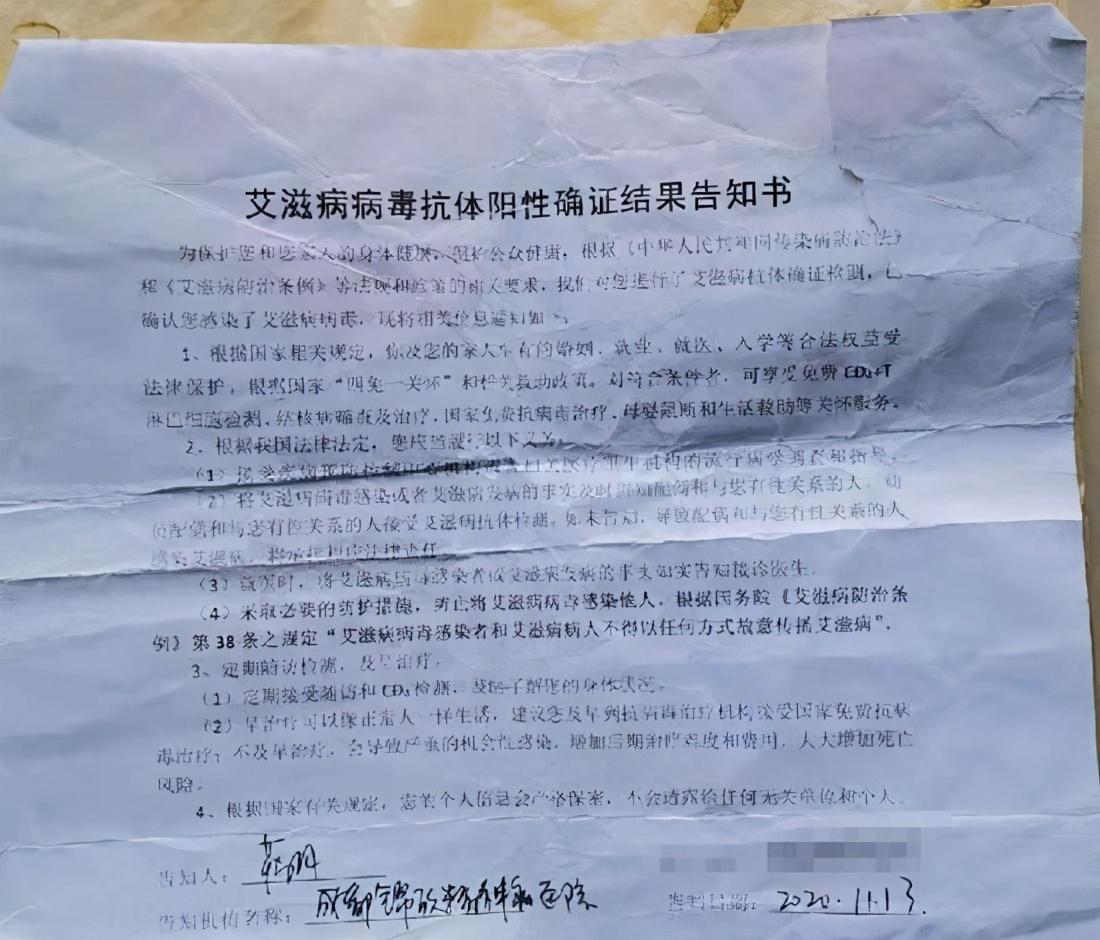 艾滋病病毒抗体阳性确证结果告知书
为保护您和您家人的身体健康，维护公众健康，根据《中华人民共和国传染病防治法》
和《艾滋病防治条例》等法规和政策的相关要求，我们对您进行了艾滋病抗体确证检测，已
确认您感染了艾滋病病毒，现将相关信息通知如下：
1、根据国家相关规定，你及您的家人享有的婚姻、就业、就医、入学等合法权益受
法律保护，根据国家“四免一关怀”和相关救助政策。对符合条件者，可享受免费CD₄+T
淋巴细胞检测、结核病筛查及治疗、国家免费抗病毒治疗、母婴阻断和生活救助等关怀服务。
2、根据我国法律法定，您应当履行以下义务：
（1）接受疾病预防控制
（2）将艾滋病病毒感染或者艾滋病发病的事实及时告知配偶和与您有性关系的人，动
员配偶和与您有性关系的人接受艾滋病抗体检测。如未告知，导致配偶和与您有性关系的人
感染艾滋病，将承担相应法律责任
（3）就诊时，将艾滋病病毒感染者或艾滋病发病的事实如实告知接诊医生。
（4）采取必要的防护措施，防止将艾滋病病毒感染他人。根据国务院《艾滋病防治条
例》第38条之规定“艾滋病病毒感染者和艾滋病病人不得以任何方式故意传播艾滋病”.
3、定期随访检测，及早治疗。
（1）定期接受随访和CD₄检测，及时了解您的身体状况。
（2）早治疗可以像正常人一样生活，建议您及早到抗病毒治疗机构接受国家免费抗病
毒治疗；不及早治疗，会导致严重的机会性感染，增加后期治疗难度和费用，大大增加死亡
风险。
4、根据国家有关规定，您的个人信息会严格保密，不会透露给任何无关单位和个人。
告知人：
告知机构名称：成都锦欣精神病医院
告知日期：2020.11.13.